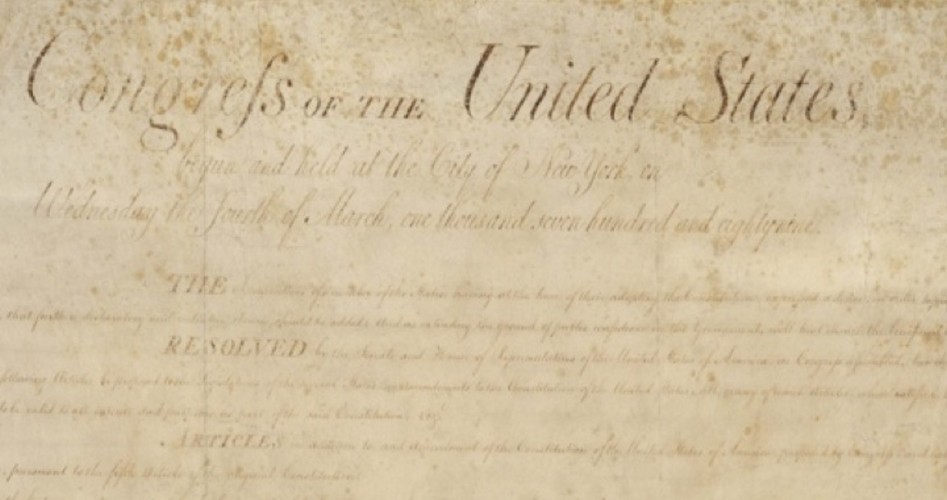 Congreſs OF THE United States,
begun and held at the City of New York, on
Wednesday the fourth of March, one thousand seven hundred and eighty nine.
THE of the States, having at the time of their adopting the Constitution, expressed a desire, in order to
that further declaratory and restrictive clauses should be added: And as extending the ground of public confidence in the Government, will best insure the
RESOLVED by the Senate and House of Representatives of the United States of America, in Congress assembled,
following Articles be proposed to the Legislatures of the several States, as amendments to the Constitution of the United States, all, or any of which Articles, when ratified
to be valid to all intents and purposes, as part of the said Constitution; viz.
ARTICLES in addition to, and amendment of the Constitution of the United States of America, proposed by Congress
pursuant to the fifth Article of the Original Constitution.